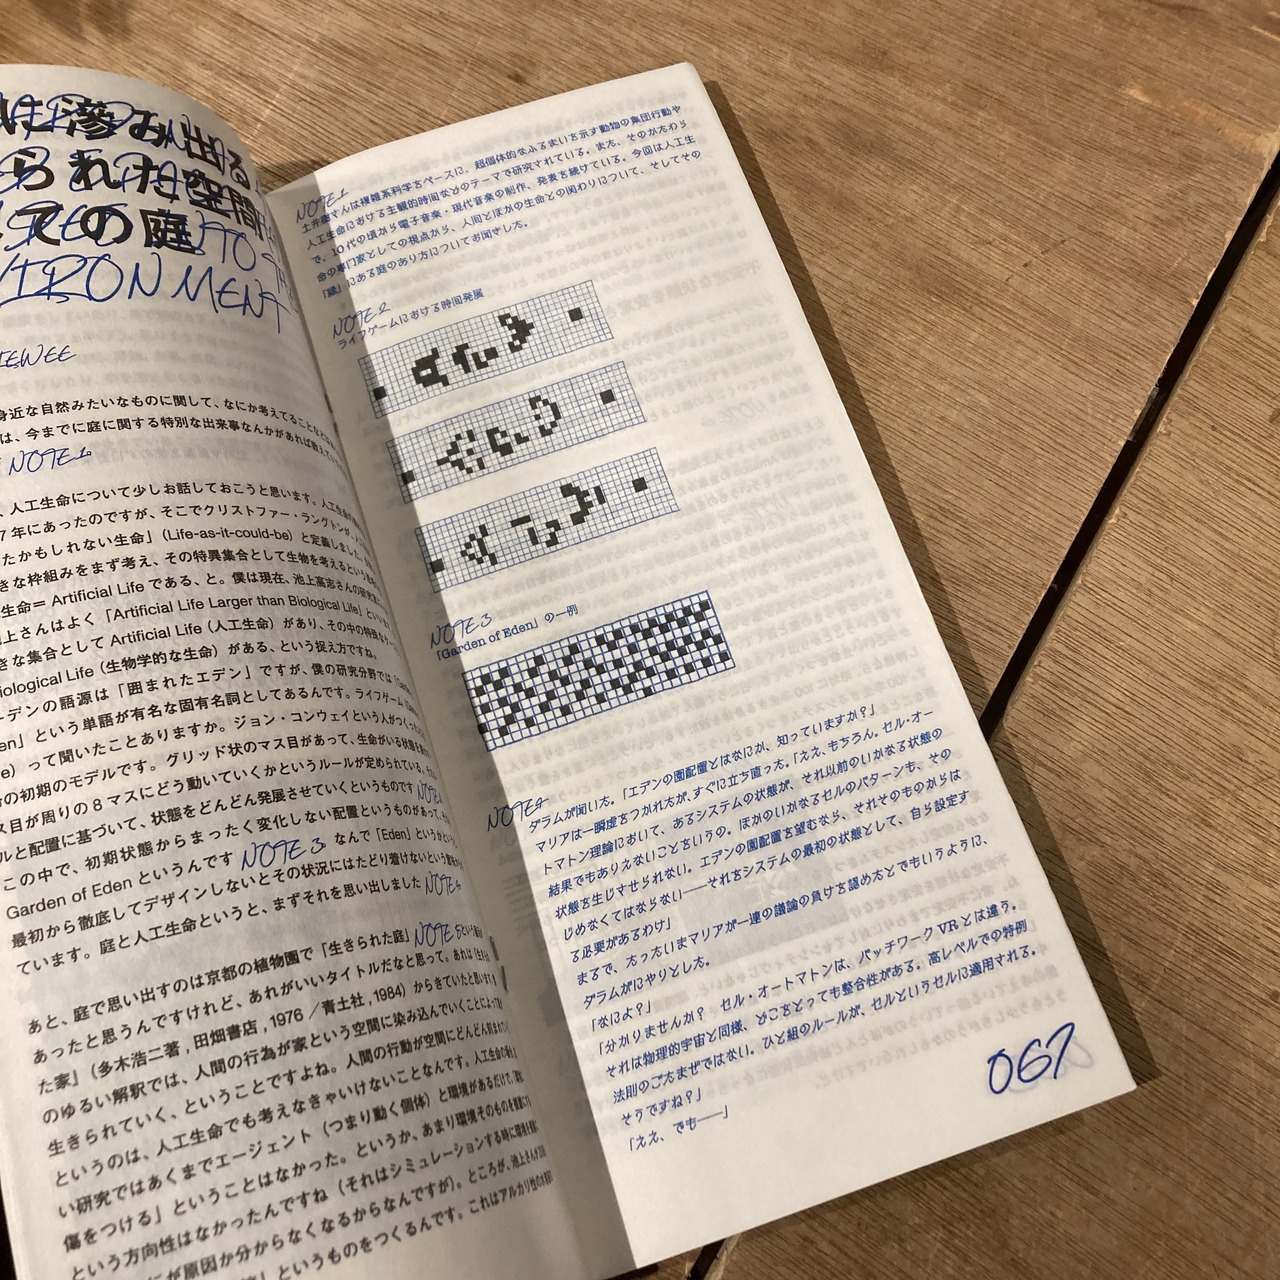 に滲み出る
られた空間
ての庭
VIRONMENT
身近な自然みたいなものに関して、なにか考えてること
は、今までに庭に関する特別な出来事なんかがあれば教えてい
NOTE 1
、人工生命について少しお話しておこうと思います。人工生命
7年にあったのですが、そこでクリストファー・ラングトンが
たかもしれない生命」（Life-as-it-could-be）と定義しました。
きな枠組みをまず考え、その特異集合として生物を考えるという
生命＝Artificial Lifeである、と。僕は現在、池上高志さんの研究
上さんはよく「Artificial Life Larger than Biological Life」という
きな集合としてArtificial Life（人工生命）があり、その中の特殊なケー
iological Life（生物学的な生命）がある、という捉え方ですね。
ーデンの語源は「囲まれたエデン」ですが、僕の研究分野では「Garden
en」という単語が有名な固有名詞としてあるんです。ライフゲーム
e）って聞いたことありますか。ジョン・コンウェイという人がつくった
の初期のモデルです。グリッド状のマス目があって、生命がいる状態を
ス目が周りの8マスにどう動いていくかというルールが定められている。
ルと配置に基づいて、状態をどんどん発展させていくというものです
この中で、初期状態からまったく変化しない配置というものがあって、
Garden of Edenというんです NOTE 3 なんで「Eden」というか
最初から徹底してデザインしないとその状況にはたどり着けないという意味
ています。庭と人工生命というと、まずそれを思い出しました NOTE 4
あと、庭で思い出すのは京都の植物園で「生きられた庭」NOTE 5 という
あったと思うんですけれど、あれがいいタイトルだなと思って。あれは「生き
た家』（多木浩二著，田畑書店，1976／青土社，1984）からきていたと思います。
のゆるい解釈では、人間の行為が家という空間に染み込んでいくことによって
生きられていく、ということですよね。人間の行動が空間にどんどん刻まれて
というのは、人工生命でも考えなきゃいけないことなんです。人工生命の
い研究ではあくまでエージェント（つまり動く個体）と環境があるだけで、「
傷をつける」ということはなかった。というか、あまり環境そのものを
という方向性はなかったんですね（それはシミュレーションする時に環境を
にが原因か分からなくなるからなんですが）。ところが、池上さんが
」というものをつくるんです。これはアルカリ性の
NOTE 1
土井樹さんは複雑系科学をベースに、超個体的なふるまいを示す動物の集団行動や
人工生命における主観的時間などのテーマで研究されている。また、そのかたわら
で、10代の頃から電子音楽・現代音楽の制作、発表を続けている。今回は人工生
命の専門家としての視点から、人間とほかの生命との関わりについて、そしてその
「縁」にある庭のあり方についてお聞きした。
NOTE 2
ライフゲームにおける時間発展
NOTE 3
「Garden of Eden」の一例
NOTE 4
ダラムが聞いた。「エデンの園配置とはなにか、知っていますか？」
マリアは一瞬虚をつかれたが、すぐに立ち直った。「ええ、もちろん。セル・オー
トマトン理論において、あるシステムの状態が、それ以前のいかなる状態の
結果でもありえないことをいうの。ほかのいかなるセルのパターンも、その
状態を生じさせられない。エデンの園配置を望むなら、それそのものからは
じめなくてはならない——それをシステムの最初の状態として、自ら設定す
る必要があるわけ」
まるで、たったいまマリアが一連の議論の負けを認めたとでもいうように、
ダラムがにやりとした。
「なによ？」
「分かりませんか？　セル・オートマトンは、パッチワークVRとは違う。
それは物理的宇宙と同様、どこをとっても整合性がある。高レベルでの特例
法則のごたまぜではない。ひと組のルールが、セルというセルに適用される。
そうですね？」
「ええ、でも——」
067